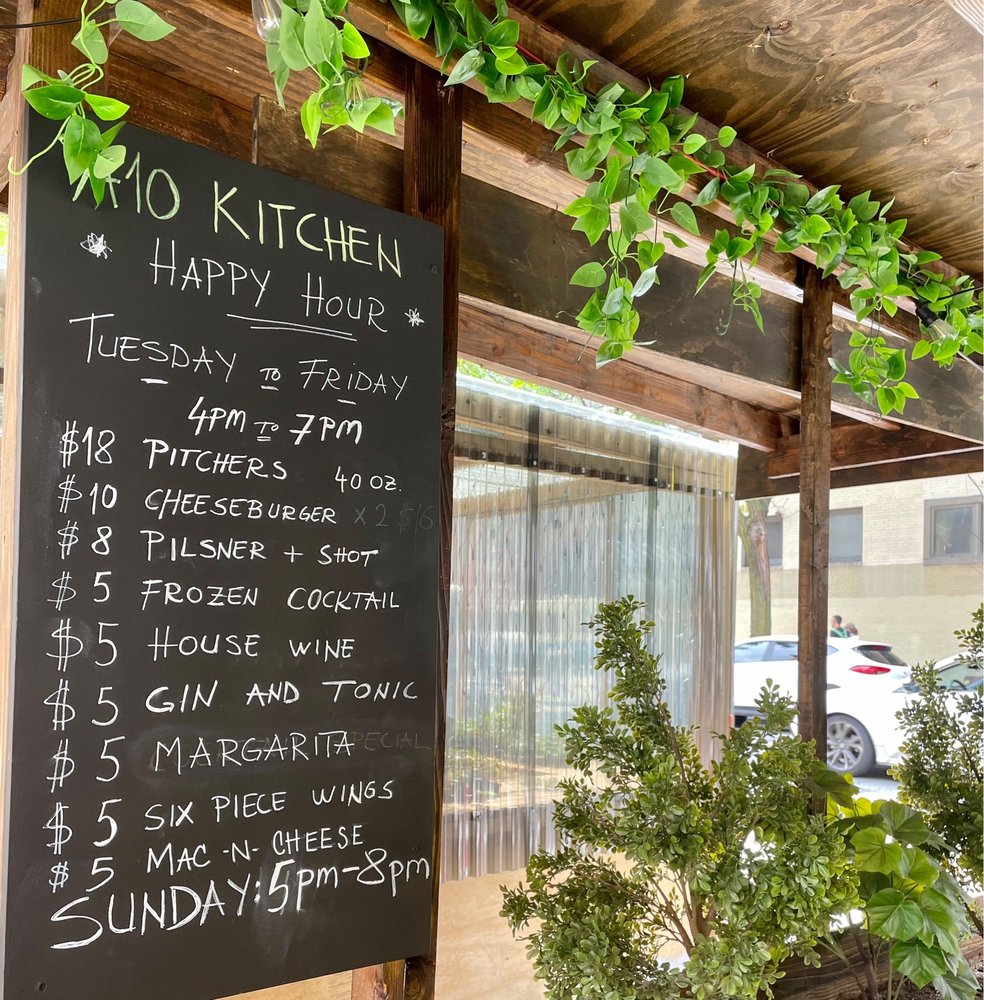 #10 KITCHEN
HAPPY HOUR
TUESDAY TO FRIDAY
4PM TO 7PM
$18 PITCHERS 40 OZ.
$10 CHEESEBURGER x 2 $16
$8 PILSNER + SHOT
$5 FROZEN COCKTAIL
$5 HOUSE WINE
$5 GIN AND TONIC
$5 MARGARITA SPECIAL
$5 SIX PIECE WINGS
$5 MAC -N- CHEESE
SUNDAY: 5PM-8PM